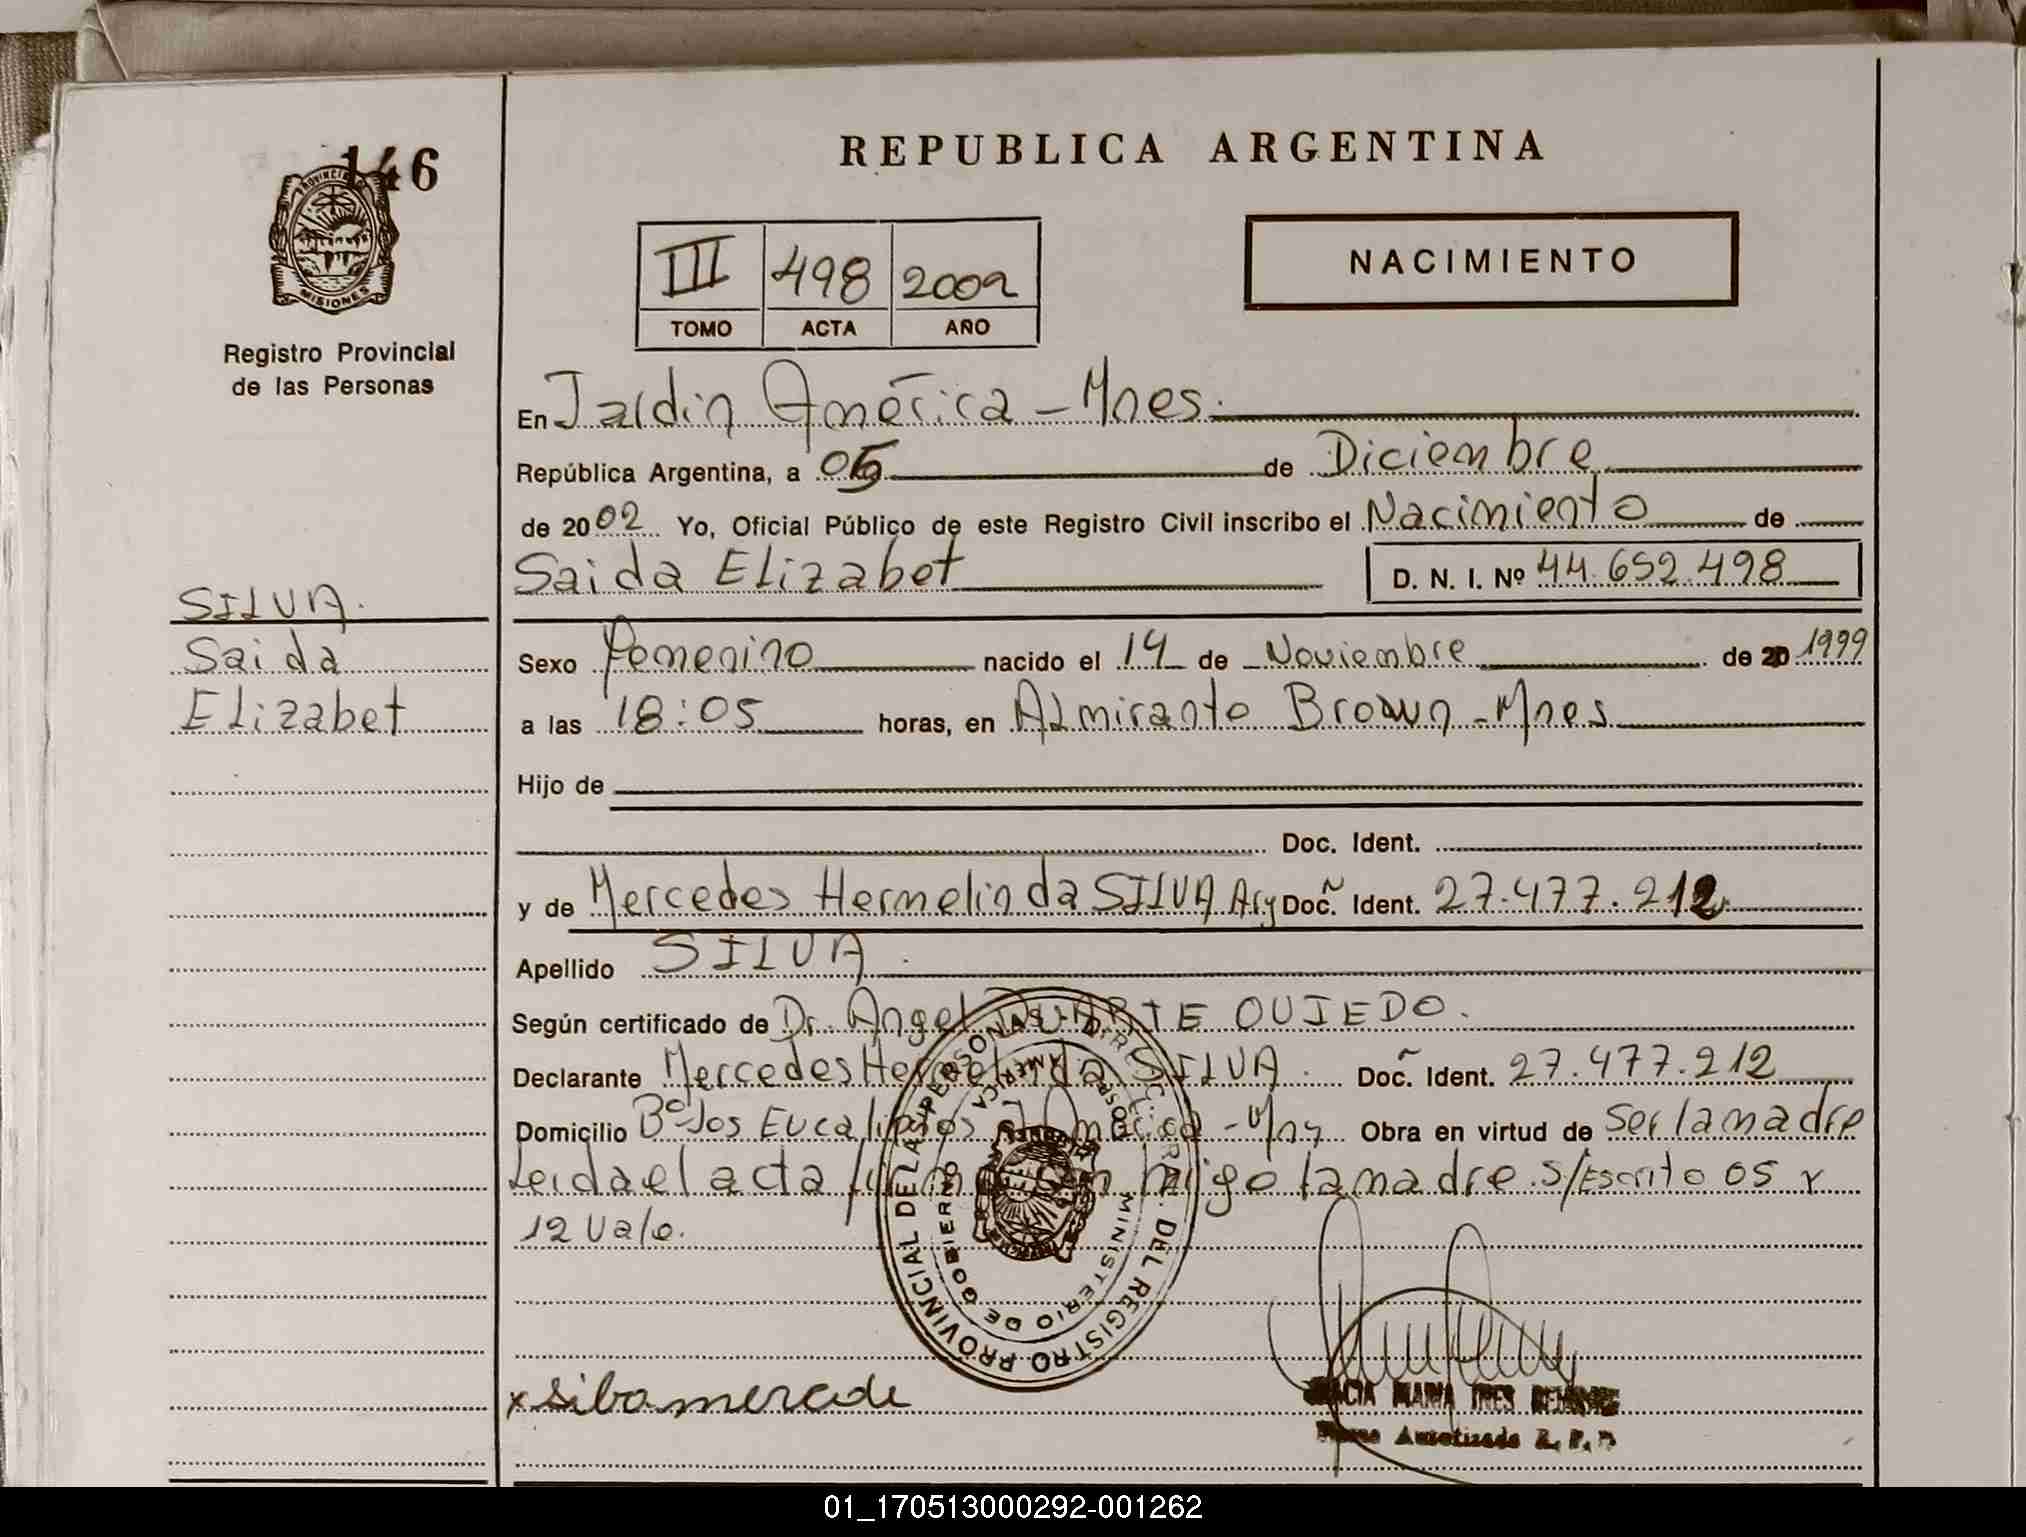 146
PROVINCIA DE
MISIONES
Registro Provincial
de las Personas
REPUBLICA ARGENTINA
III 498 2002
TOMO ACTA AÑO
NACIMIENTO
En Jardin América - Mnes.
República Argentina, a 05 de Diciembre
de 2002 Yo, Oficial Público de este Registro Civil inscribo el Nacimiento de
Saida Elizabet D. N. I. Nº 44.652.498
SILVA.
Saida
Elizabet
Sexo Femenino nacido el 14 de Noviembre de 20 1999
a las 18:05 horas, en Almirante Brown - Mnes
Hijo de
Doc. Ident.
y de Mercedes Hermelinda SILVA Arg Doc. Ident. 27.477.212
Apellido SILVA.
Según certificado de Dr. Angel DUARTE OVIEDO.
Declarante Mercedes Hermelinda SILVA. Doc. Ident. 27.477.212
Domicilio Bº Los Eucaliptos J. América - Mny Obra en virtud de Ser la madre
Leida el acta firma conmigo la madre. S/Escrito 05 y
12 Vale.
PROVINCIAL DE LAS PERSONAS DEL REGISTRO
MINISTERIO DE GOBIERNO
x silba mercede
MARIA TRES
Firma Autorizada R. P. P.
01_170513000292-001262